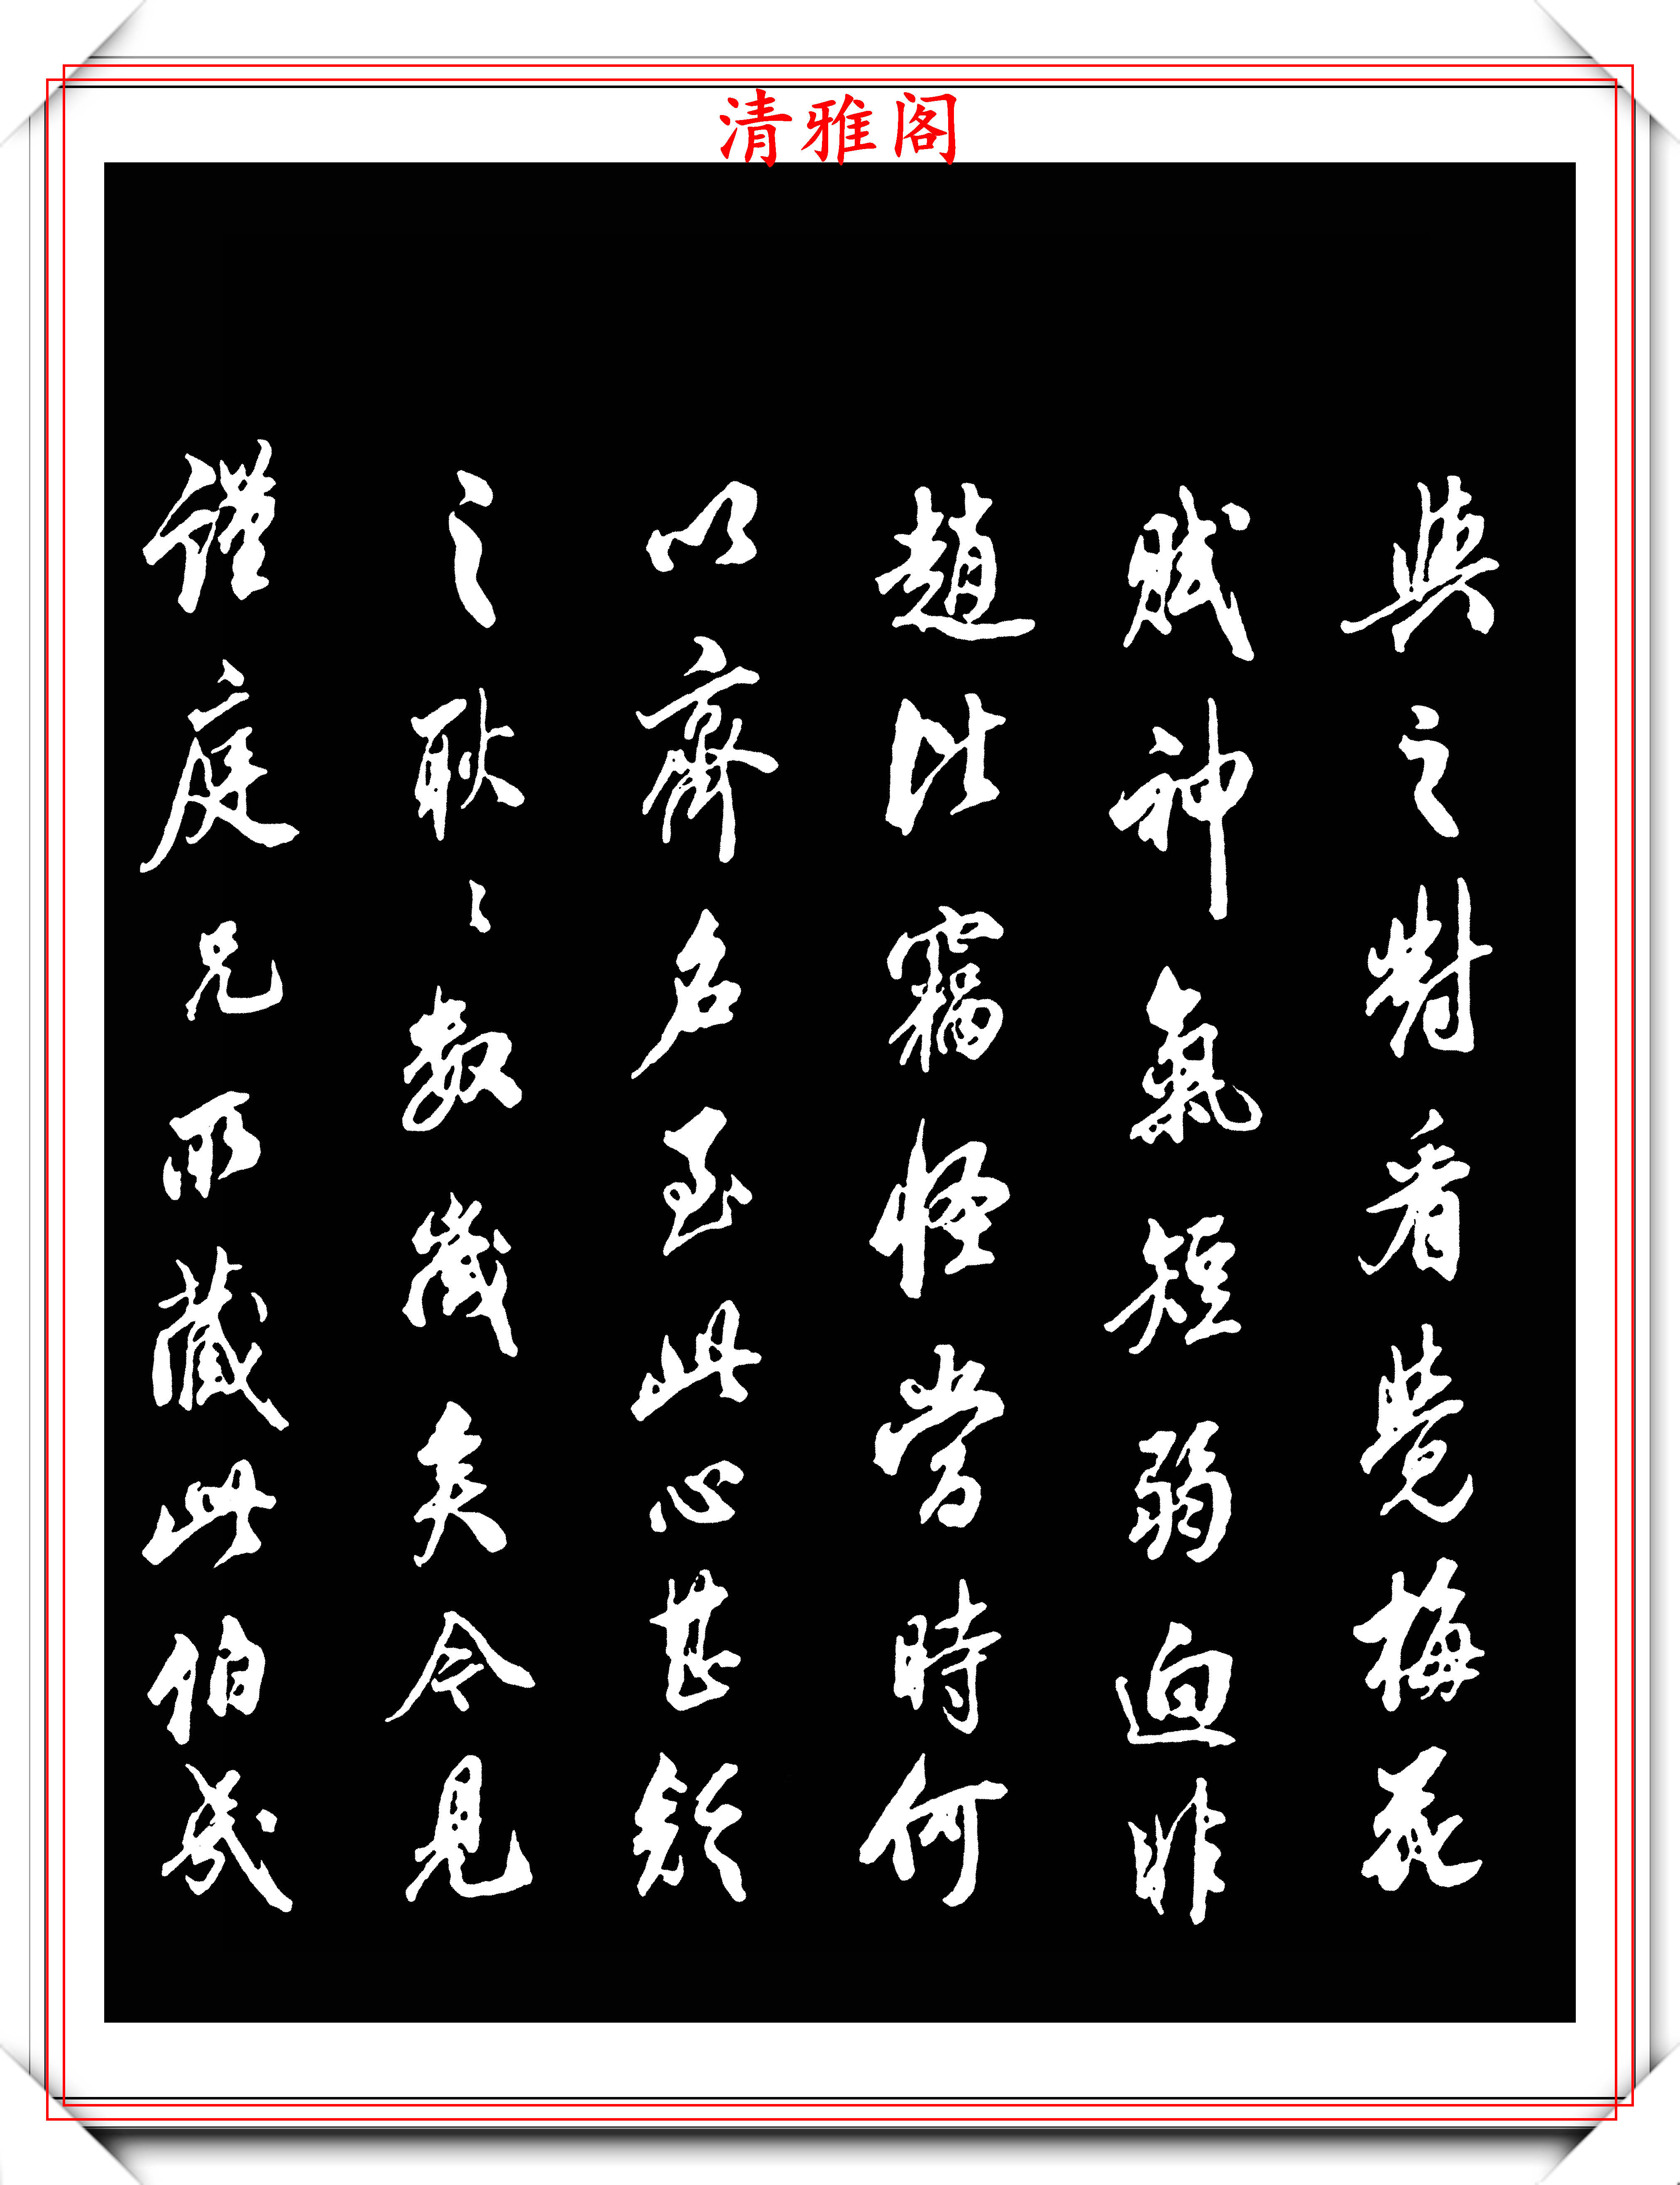 清雅阁
與之對看覺梅花
賦神氣短弱迥非
趙比竊怪當時何
以齊名至此心甚疑
之耿耿數歲矣今見
僅庭兄所藏此伯幾